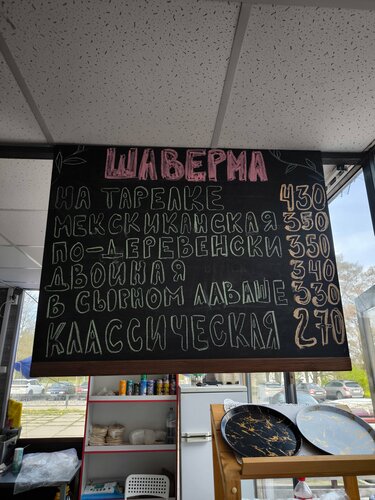 ШАВЕРМА
НА ТАРЕЛКЕ 430
МЕКСКИКАНСКАЯ 350
ПО-ДЕРЕВЕНСКИ 350
ДВОЙНАЯ 340
В СЫРНОМ ЛАВАШЕ 330
КЛАССИЧЕСКАЯ 270